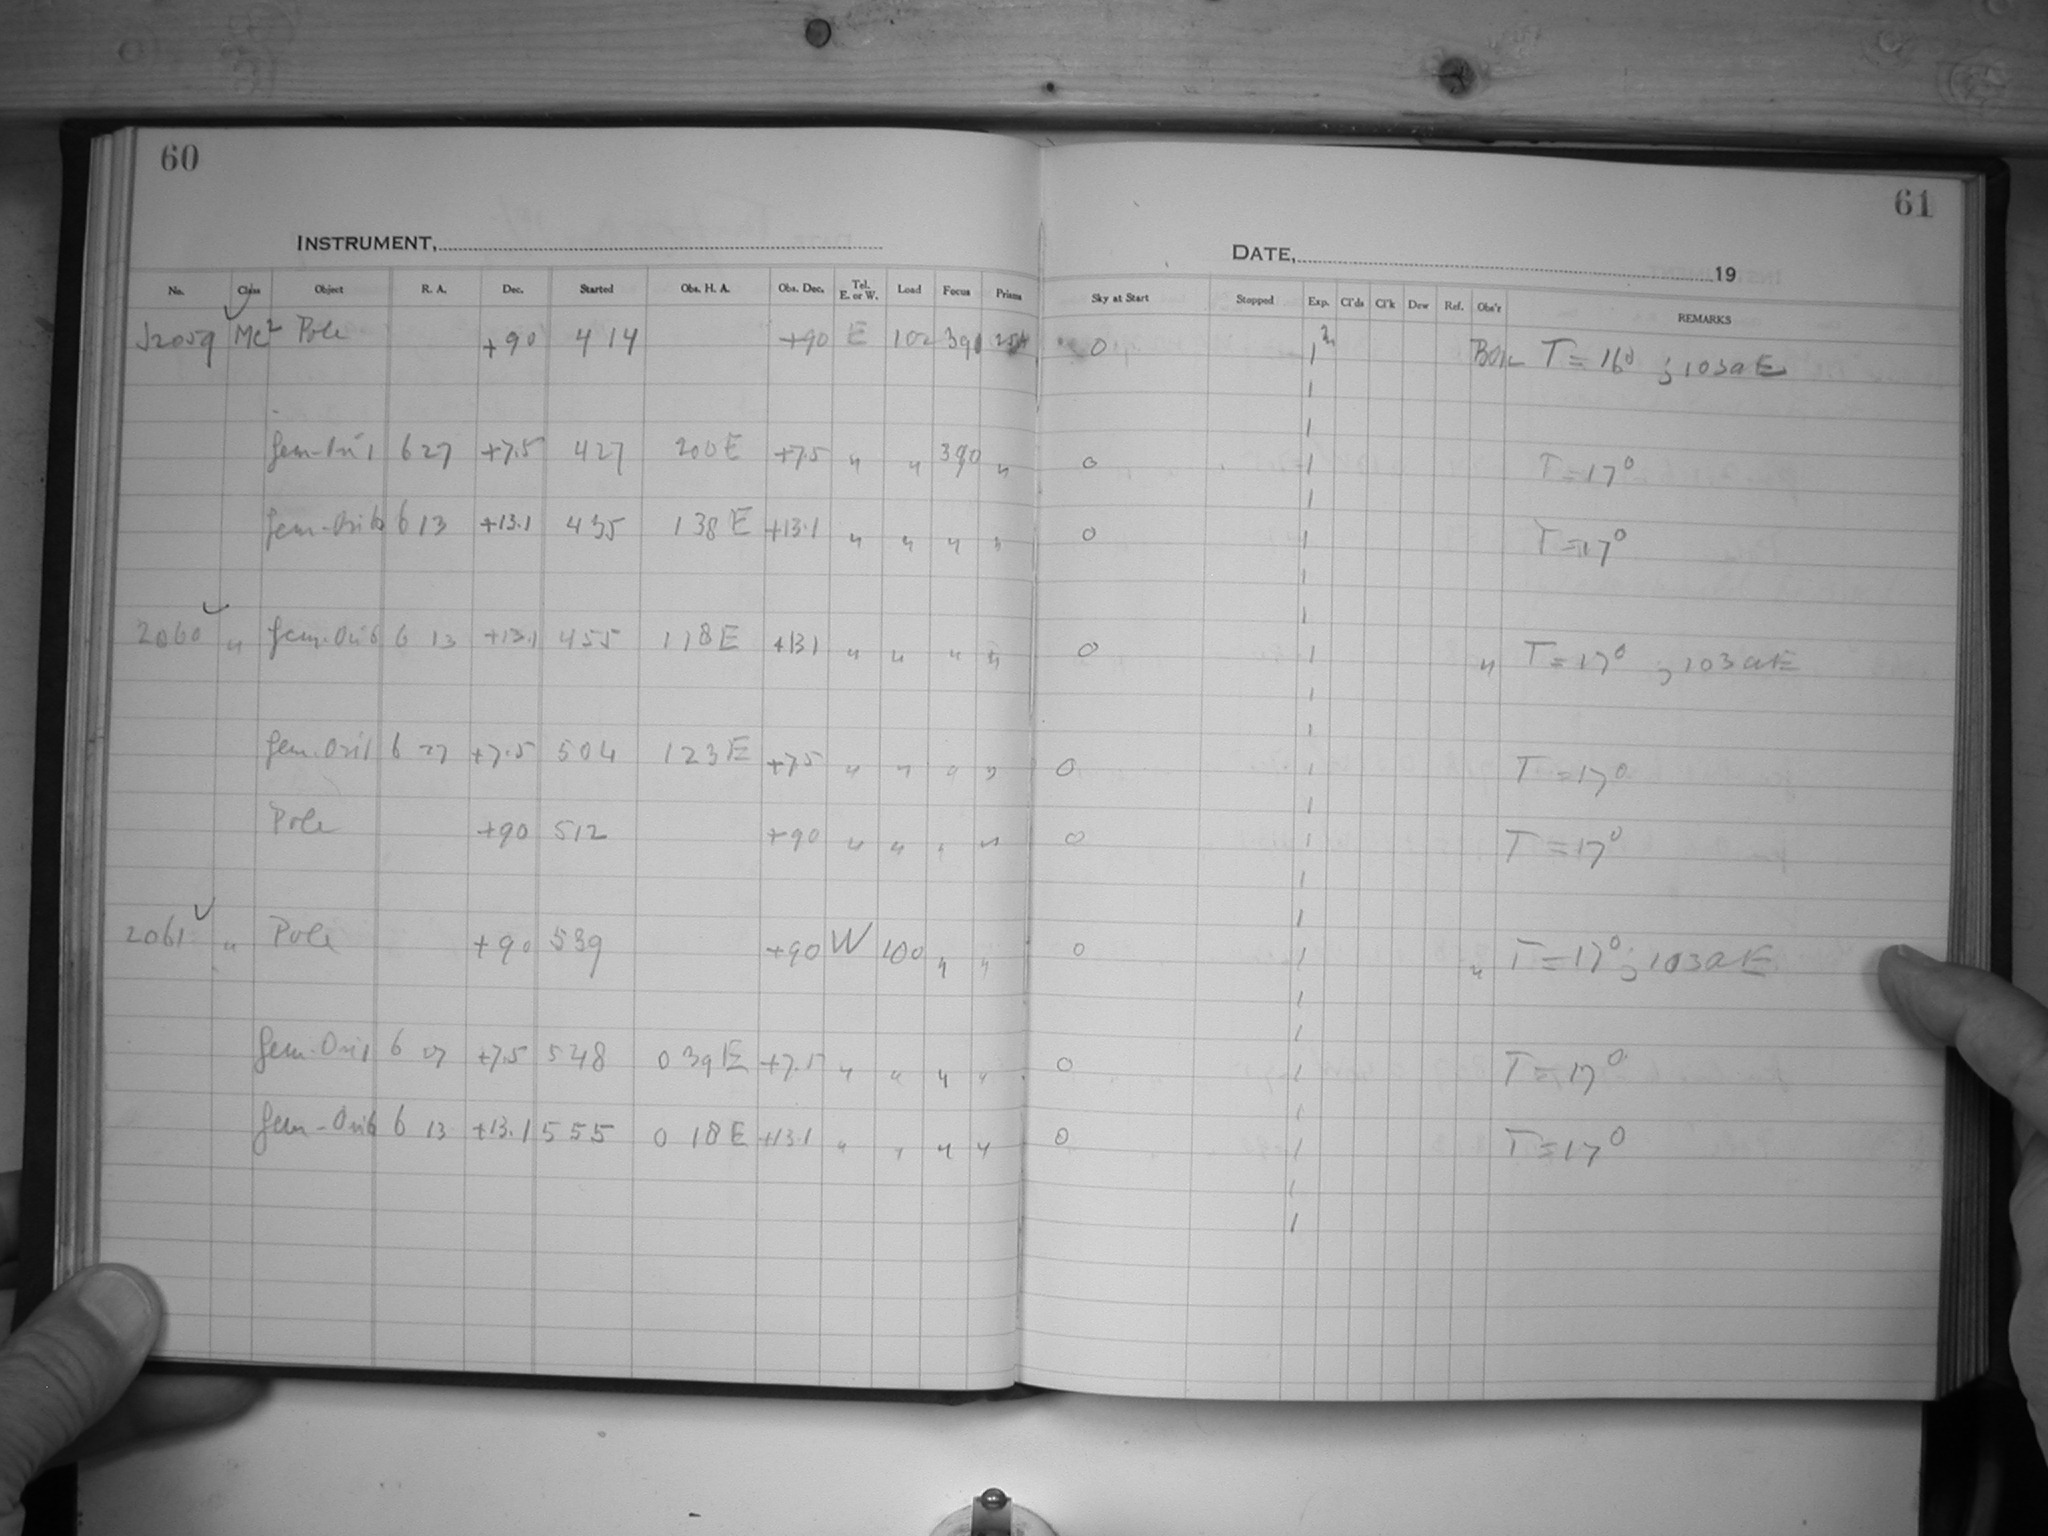 60
61
INSTRUMENT,
DATE, 19
No. Class Object R. A. Dec. Started Obs. H. A. Obs. Dec. Tel. E. or W. Load Focus Prisms Sky at Start Stopped Exp. Cl'ds Cl'k Dew Ref. Obs'r REMARKS
J2059 MC2 Pole +90 4 14 +90 E 102 391 0 1m T = 16° ; 103aE
1
1
Gem-Ori 1 6 27 +7.5 4 27 2 00 E +7.5 " " 390 " 0 1 T = 17°
1
Gem-Ori 6 6 13 +13.1 4 35 1 38 E +13.1 " " " " 0 1 T = 17°
1
1
2060 " Gem-Ori 6 6 13 +13.1 4 55 1 18 E +13.1 " " " " 0 1 " T = 17° ; 103aE
1
1
Gem-Ori 1 6 27 +7.5 5 04 1 23 E +7.5 " " " " 0 1 T = 17°
1
Pole +90 5 12 +90 " " " " 0 1 T = 17°
1
1
2061 " Pole +90 5 39 +90 W 100 " " 0 1 " T = 17° ; 103aE
1
1
Gem-Ori 1 6 27 +7.5 5 48 0 39 E +7.5 " " " " 0 1 T = 17°
1
Gem-Ori 6 6 13 +13.1 5 55 0 18 E +13.1 " " " " 0 1 T = 17°
1
1